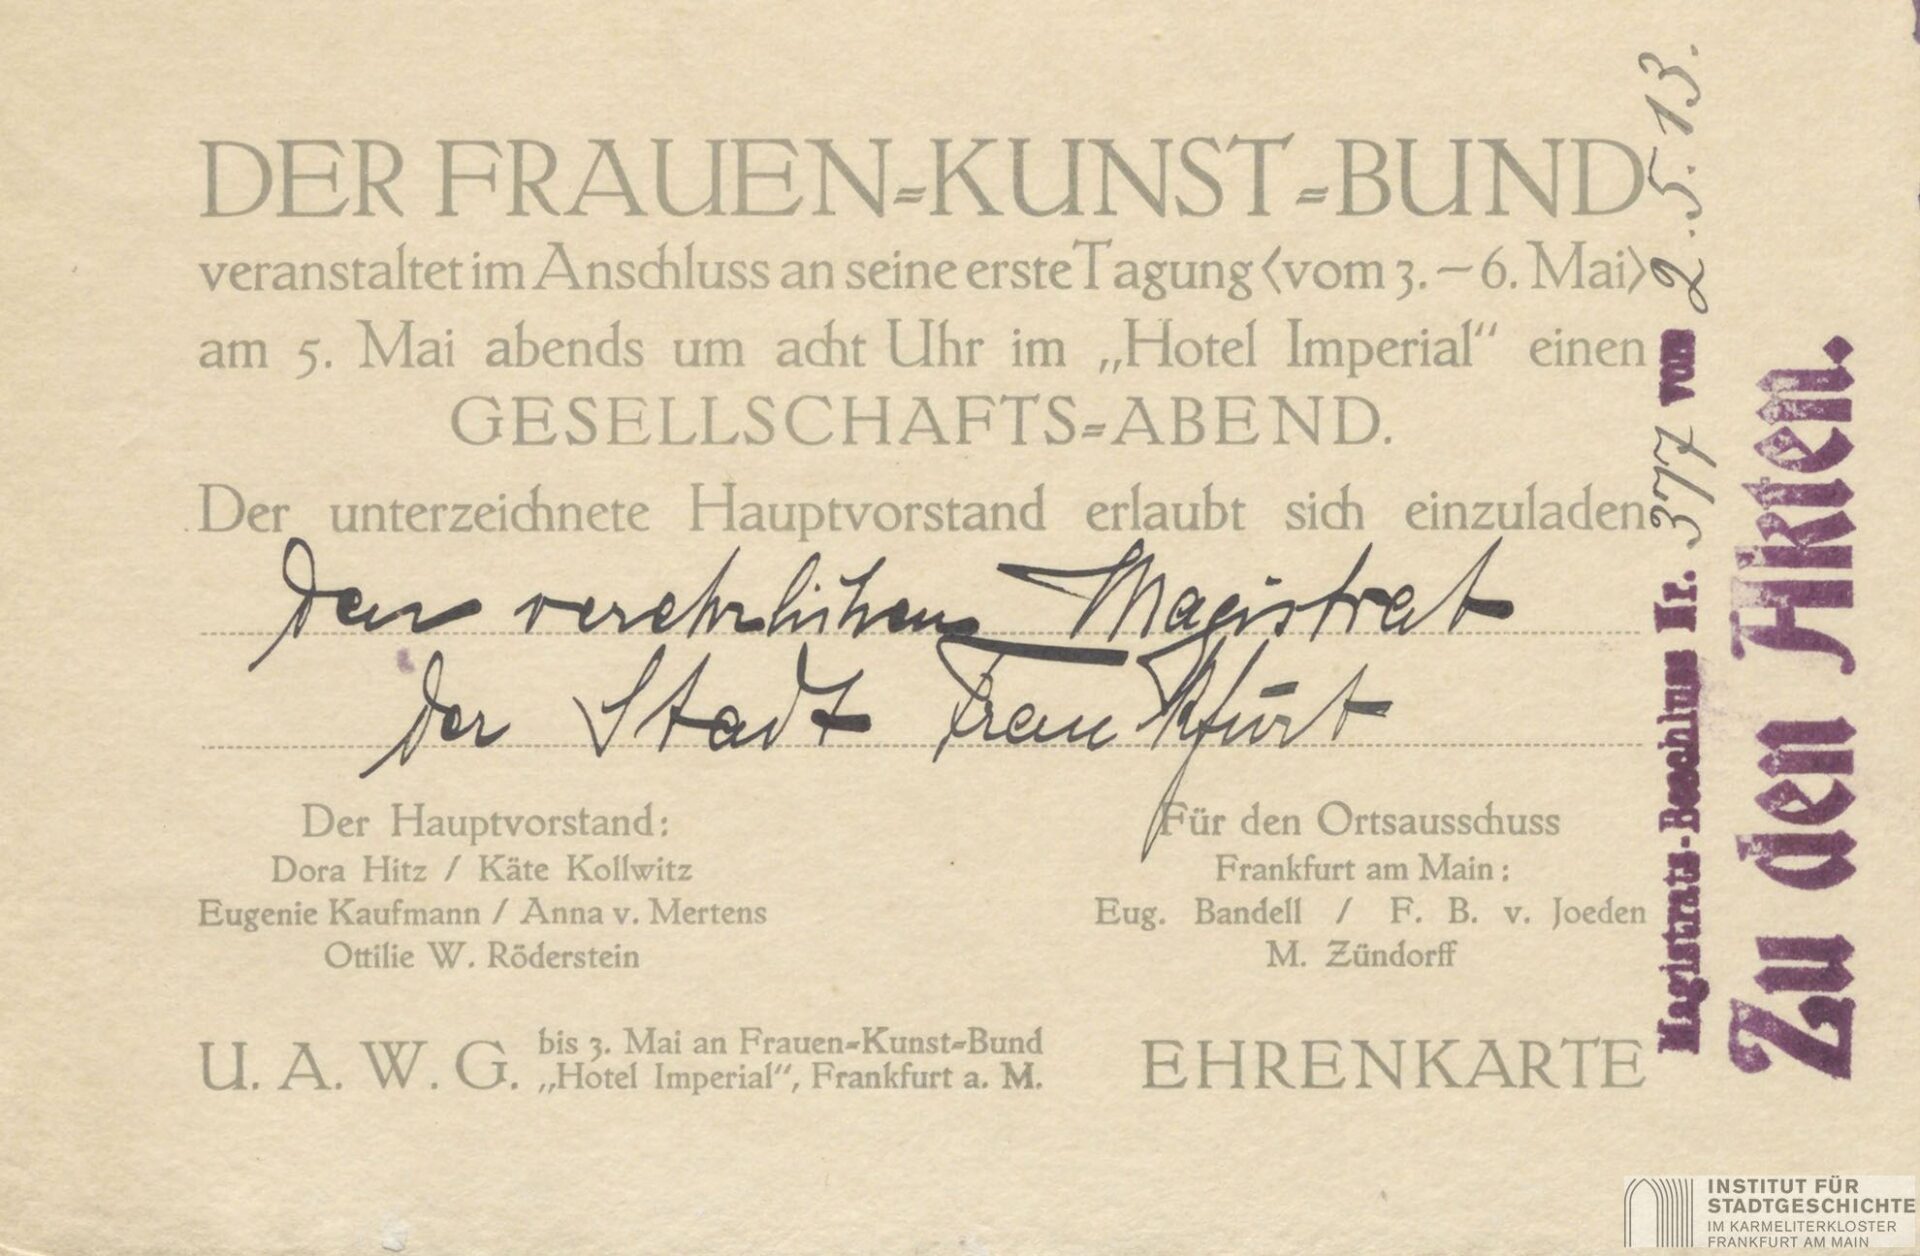 DER FRAUEN=KUNST=BUND
veranstaltet im Anschluss an seine erste Tagung <vom 3. – 6. Mai>
am 5. Mai abends um acht Uhr im „Hotel Imperial“ einen
GESELLSCHAFTS=ABEND.
Der unterzeichnete Hauptvorstand erlaubt sich einzuladen
den verehrlichen Magistrat
der Stadt Frankfurt
Der Hauptvorstand:
Dora Hitz / Käte Kollwitz
Eugenie Kaufmann / Anna v. Mertens
Ottilie W. Röderstein
Für den Ortsausschuss
Frankfurt am Main:
Eug. Bandell / F. B. v. Joeden
M. Zündorff
U. A. W. G. bis 3. Mai an Frauen=Kunst=Bund
„Hotel Imperial“, Frankfurt a. M.
EHRENKARTE
Magistrats-Beschluss Nr. 377 von 2. 5. 13.
Zu den Akten.
INSTITUT FÜR
STADTGESCHICHTE
IM KARMELITERKLOSTER
FRANKFURT AM MAIN